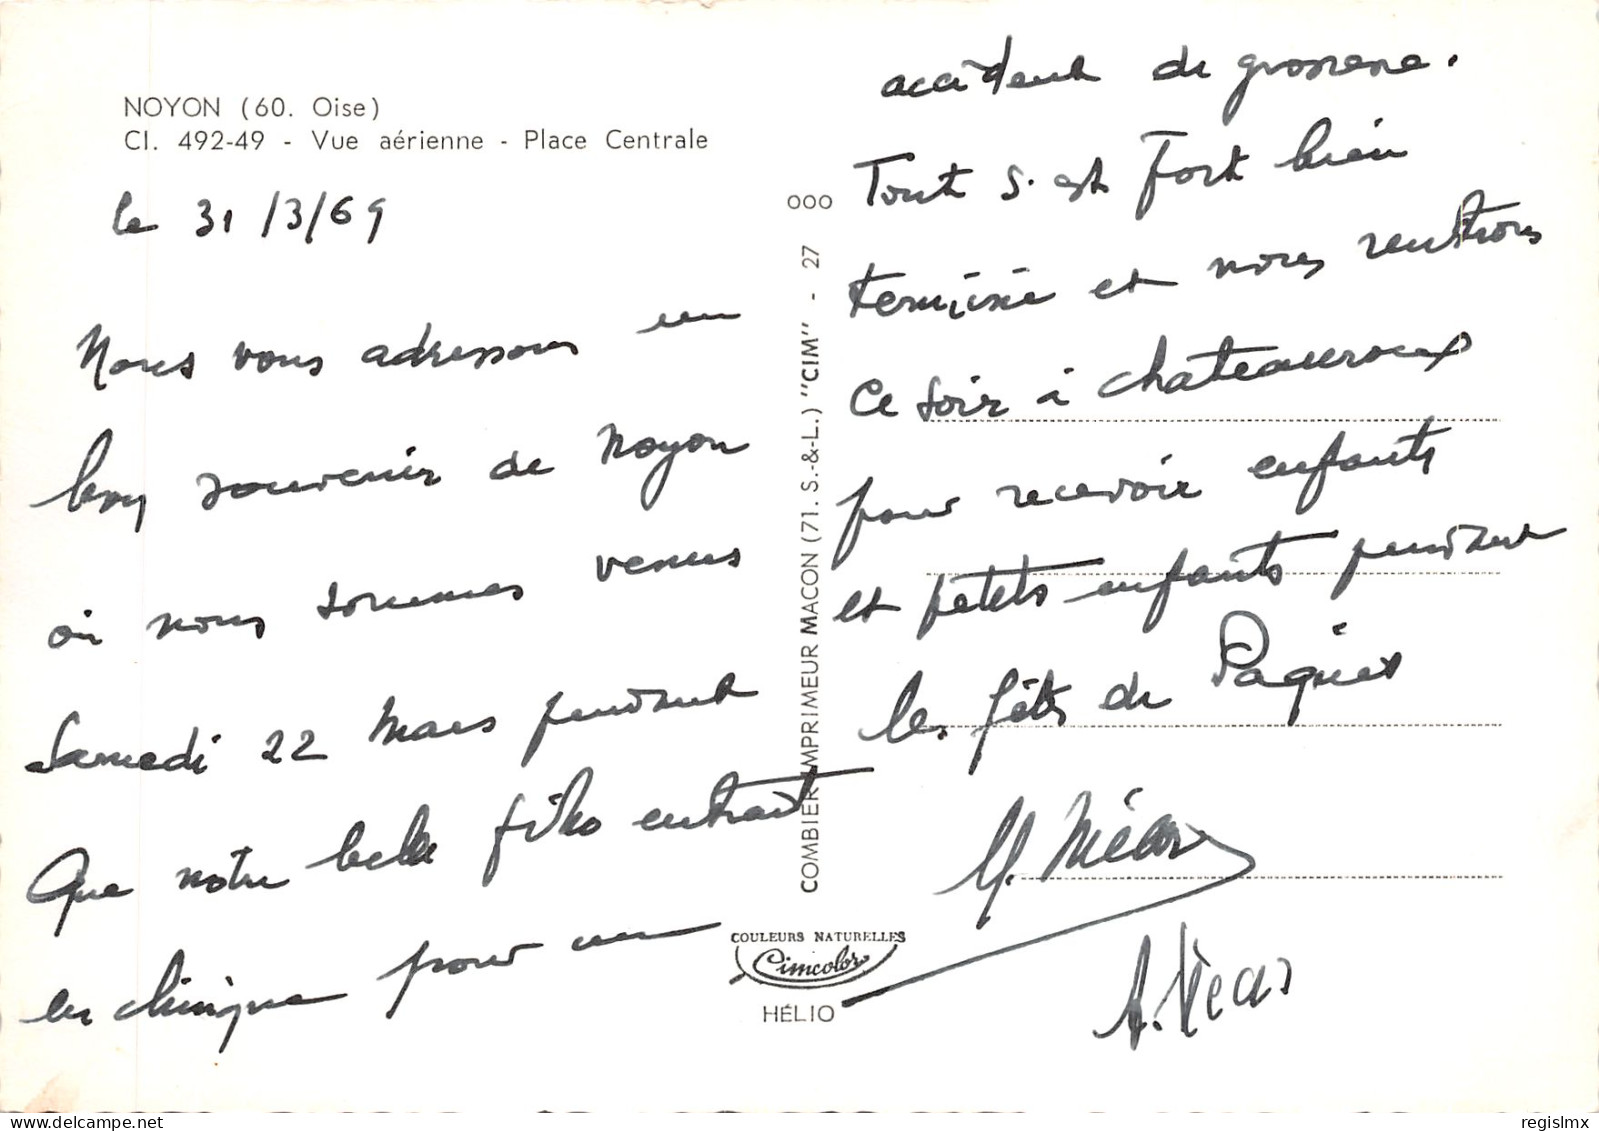 NOYON (60. Oise)
CI. 492-49 - Vue aérienne - Place Centrale
le 31/3/69
Nous vous adressons un
bon souvenir de Noyon
où nous sommes venus
Samedi 22 Mars pendant
que notre belle fille entrait
en clinique pour un
accident de grossesse.
Tout s'est fort bien
terminé et nous rentrons
ce soir à Chateauroux
pour recevoir enfants
et petits enfants pendant
les fêtes de Pâques
COMBIER IMPRIMEUR MACON (71. S.-&-L.) "CIM" - 27
OOO
COULEURS NATURELLES
Cimcolor
HÉLIO
regislmx